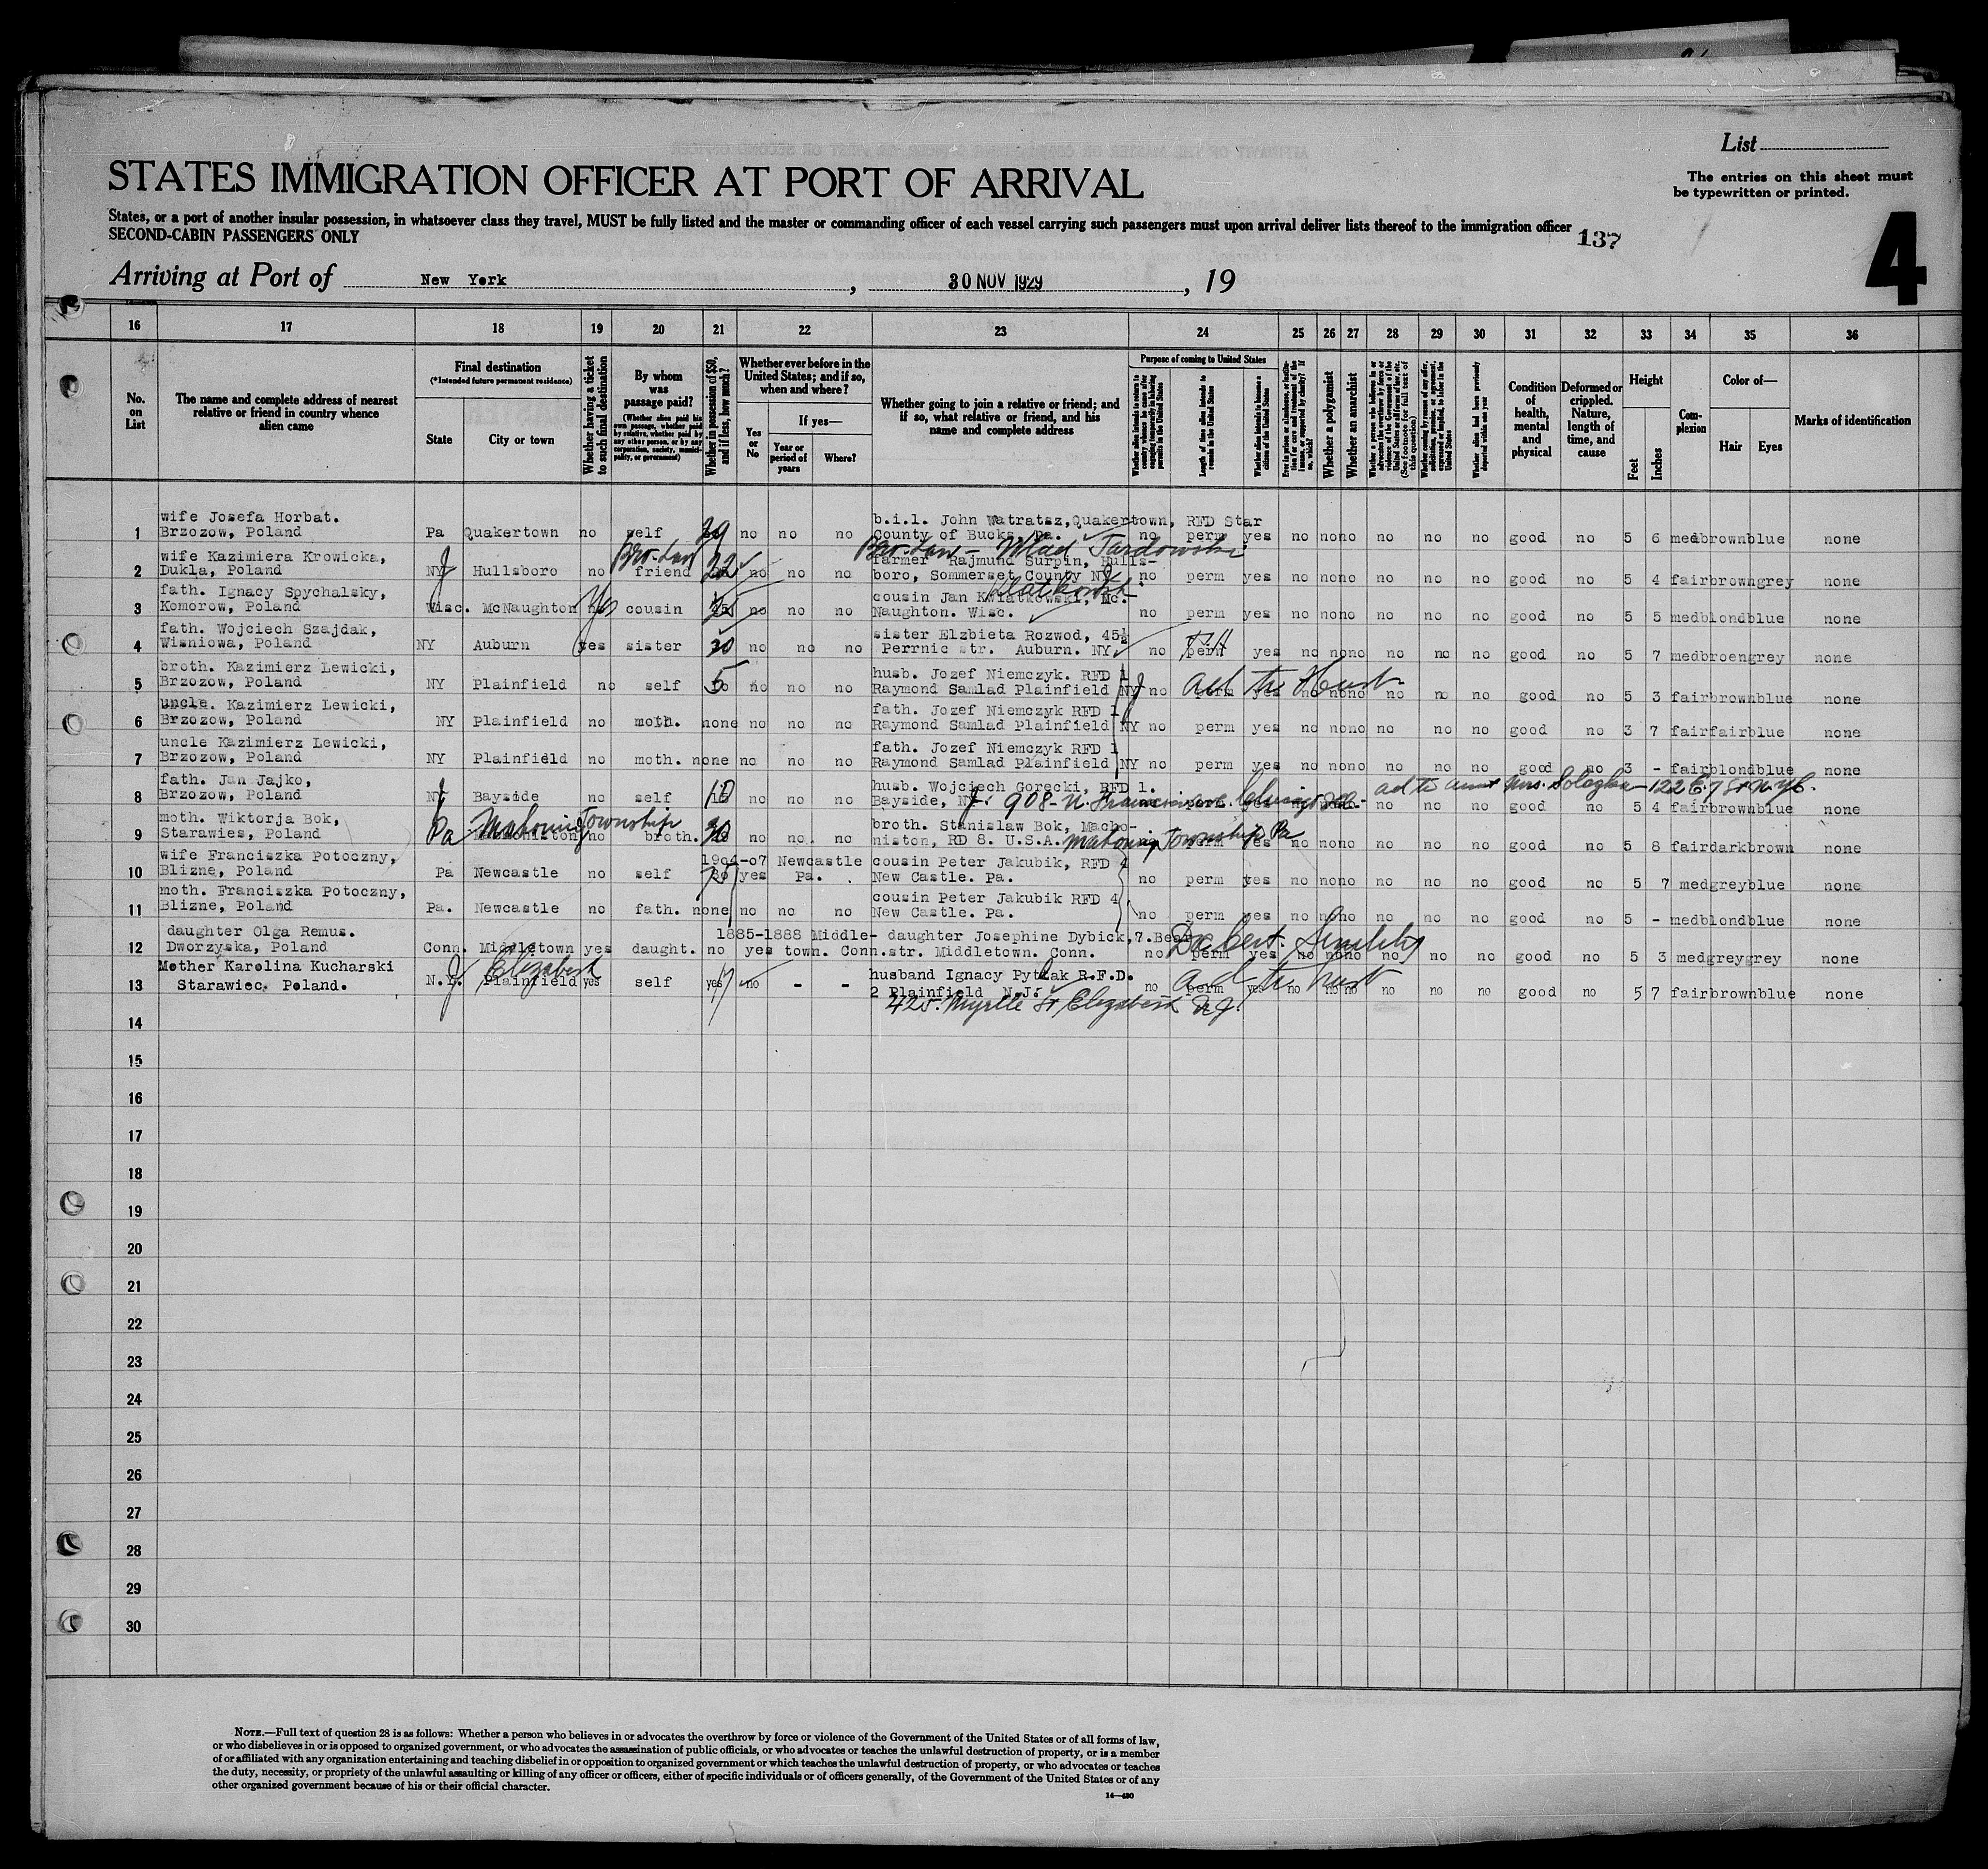 List
The entries on this sheet must
be typewritten or printed.
STATES IMMIGRATION OFFICER AT PORT OF ARRIVAL
States, or a port of another insular possession, in whatsoever class they travel, MUST be fully listed and the master or commanding officer of each vessel carrying such passengers must upon arrival deliver lists thereof to the immigration officer
SECOND-CABIN PASSENGERS ONLY
137
4
Arriving at Port of New York, 30 NOV 1929, 19
16 17 18 19 20 21 22 23 24 25 26 27 28 29 30 31 32 33 34 35 36
No. on List
The name and complete address of nearest relative or friend in country whence alien came
Final destination
(*Intended future permanent residence)
State
City or town
Whether having a ticket to such final destination
By whom was passage paid?
(Whether alien paid his own passage, whether paid by relative, whether paid by any other person, or by any corporation, society, municipality, or government)
Whether in possession of $50, and if less, how much?
Whether ever before in the United States; and if so, when and where?
Yes or No
If yes—
Year or period of years
Where?
Whether going to join a relative or friend; and if so, what relative or friend, and his name and complete address
Purpose of coming to United States
Whether alien intends to return to country whence he came after engaging temporarily in laboring pursuits in the United States
Length of time alien intends to remain in the United States
Whether alien intends to become a citizen of the United States
Whether a polygamist
Whether an anarchist
Whether alien had been previously deported within one year
Condition of health, mental and physical
Deformed or crippled. Nature, length of time, and cause
Height
Feet
Inches
Complexion
Color of—
Hair
Eyes
Marks of identification
1 wife Josefa Horbat. Brzozow, Poland Pa Quakertown no self 29 no no no b.i.l. John Watratsz, Quakertown, RFD Star County of Bucks, Pa. no perm yes no no no no no no good no 5 6 med brown blue none
Bro-Law Bro-Law - Wlad
2 wife Kazimiera Krowicka, Dukla, Poland NY J Hullsboro no friend 22 no no no farmer Rajmund Surpin, Hullsboro, Sommerset County NY no perm yes no no no no no no good no 5 4 fair brown grey none
3 fath. Ignacy Spychalsky, Komorow, Poland Wisc. McNaughton no Yes cousin no no no cousin Jan Kwiatkowski, Mc. Naughton. Wisc. no perm yes no no no no no no good no 5 5 med blond blue none
4 fath. Wojciech Szajdak, Wisniowa, Poland NY Auburn yes sister 30 no no no sister Elzbieta Rozwod, 45½ Perrnic str. Auburn. NY no perm yes no no no no no no good no 5 7 med broen grey none
5 broth. Kazimierz Lewicki, Brzozow, Poland NY Plainfield no self 5 no no no husb. Jozef Niemczyk. RFD 1 Raymond Samlad Plainfield NY J no perm yes no no no no no no good no 5 3 fair brown blue none
6 uncle. Kazimierz Lewicki, Brzozow, Poland NY Plainfield no moth. none no no no fath. Jozef Niemczyk RFD 1 Raymond Samlad Plainfield NY no perm yes no no no no no no good no 3 7 fair fair blue none
7 uncle Kazimierz Lewicki, Brzozow, Poland NY Plainfidld no moth. none no no no fath. Jozef Niemczyk RFD 1 Raymond Samlad Plainfield NY no perm yes no no no no no no good no 3 - fair blond blue none
8 fath. Jan Jajko, Brzozow, Poland NY J Bayside no self 10 no no no husb. Wojciech Gorecki, RFD 1. Bayside, NY J. 908-N. ad to aunt Mrs. - 122 E. 7 St N.Y.C. 5 4 fair brown blue none
9 moth. Wiktorja Bok, Starawies, Poland Pa Mahoning Township no broth. no no no broth. Stanislaw Bok, Machoniston, RD 8. U.S.A. Mahoning Township Pa perm yes no no no no no no good no 5 8 fair dark brown none
10 wife Franciszka Potoczny, Blizne, Poland Pa Newcastle no self yes 1904-07 Newcastle Pa. cousin Peter Jakubik, RFD 4 New Castle. Pa. no perm yes no no no no no no good no 5 7 med grey blue none
11 moth. Franciszka Potoczny, Blizne, Poland Pa. Newcastle no fath. none no no no cousin Peter Jakubik RFD 4 New Castle. Pa. no perm yes no no no no no no good no 5 - med blond blue none
12 daughter Olga Remus. Dworzyska, Poland Conn. Middletown yes daught. no yes 1885-1888 Middletown. Conn. daughter Josephine Dybick, 7. Bear str. Middletown. Conn. no perm yes no no no no no no good no 5 3 med grey grey none
Dr Cert. Senility
13 Mother Karolina Kucharski Starawiec. Poland. N.Y. J Plainfield Elizabeth yes self yes no - - husband Ignacy Pytlak R.F.D. 2 Plainfield N.J. no perm yes no no no no no no good no 5 7 fair brown blue none
ad to hust
425. Myrtle St Elizabeth N.J.
14
15
16
17
18
19
20
21
22
23
24
25
26
27
28
29
30
NOTE.—Full text of question 28 is as follows: Whether a person who believes in or advocates the overthrow by force or violence of the Government of the United States or of all forms of law,
or who disbelieves in or is opposed to organized government, or who advocates the assassination of public officials, or who advocates or teaches the unlawful destruction of property, or is a member
of or affiliated with any organization entertaining and teaching disbelief in or opposition to organized government or which teaches the unlawful destruction of property, or who advocates or teaches
the duty, necessity, or propriety of the unlawful assaulting or killing of any officer or officers, either of specific individuals or of officers generally, of the Government of the United States or of any
other organized government because of his or their official character.
14—430